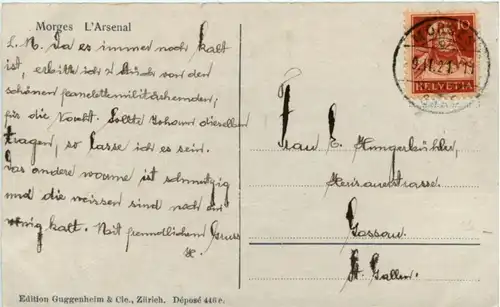 Morges L'Arsenal
L. M. Da es immer noch kalt
ist, erbitte ich 2 Stück von den
schönen panelettemilitärhemden,
für die Nacht. Sollte Johann dieselben
tragen, so lasse ich es sein.
Das andere warme ist schmutzig
und die weissen sind noch ein
wenig kalt. Mit freundlichem Gruss
Frau E. Hungerbühler,
Herisauerstrasse.
Gossau.
St. Gallen.
10
HELVETIA
Edition Guggenheim & Cie., Zürich. Déposé 446 e.